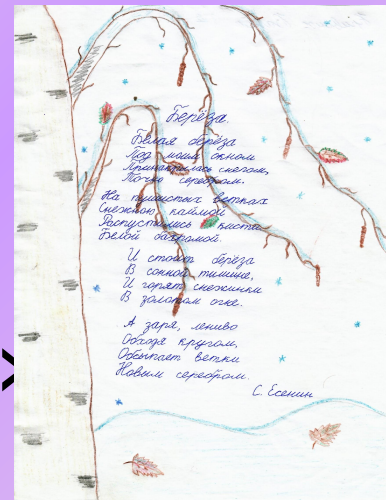 Берёза.
Белая берёза
Под моим окном
Принакрылась снегом,
Точно серебром.
На пушистых ветках
Снежною каймой
Распустились кисти
Белой бахромой.
И стоит берёза
В сонной тишине,
И горят снежинки
В золотом огне.
А заря, лениво
Обходя кругом,
Обсыпает ветки
Новым серебром.
С. Есенин